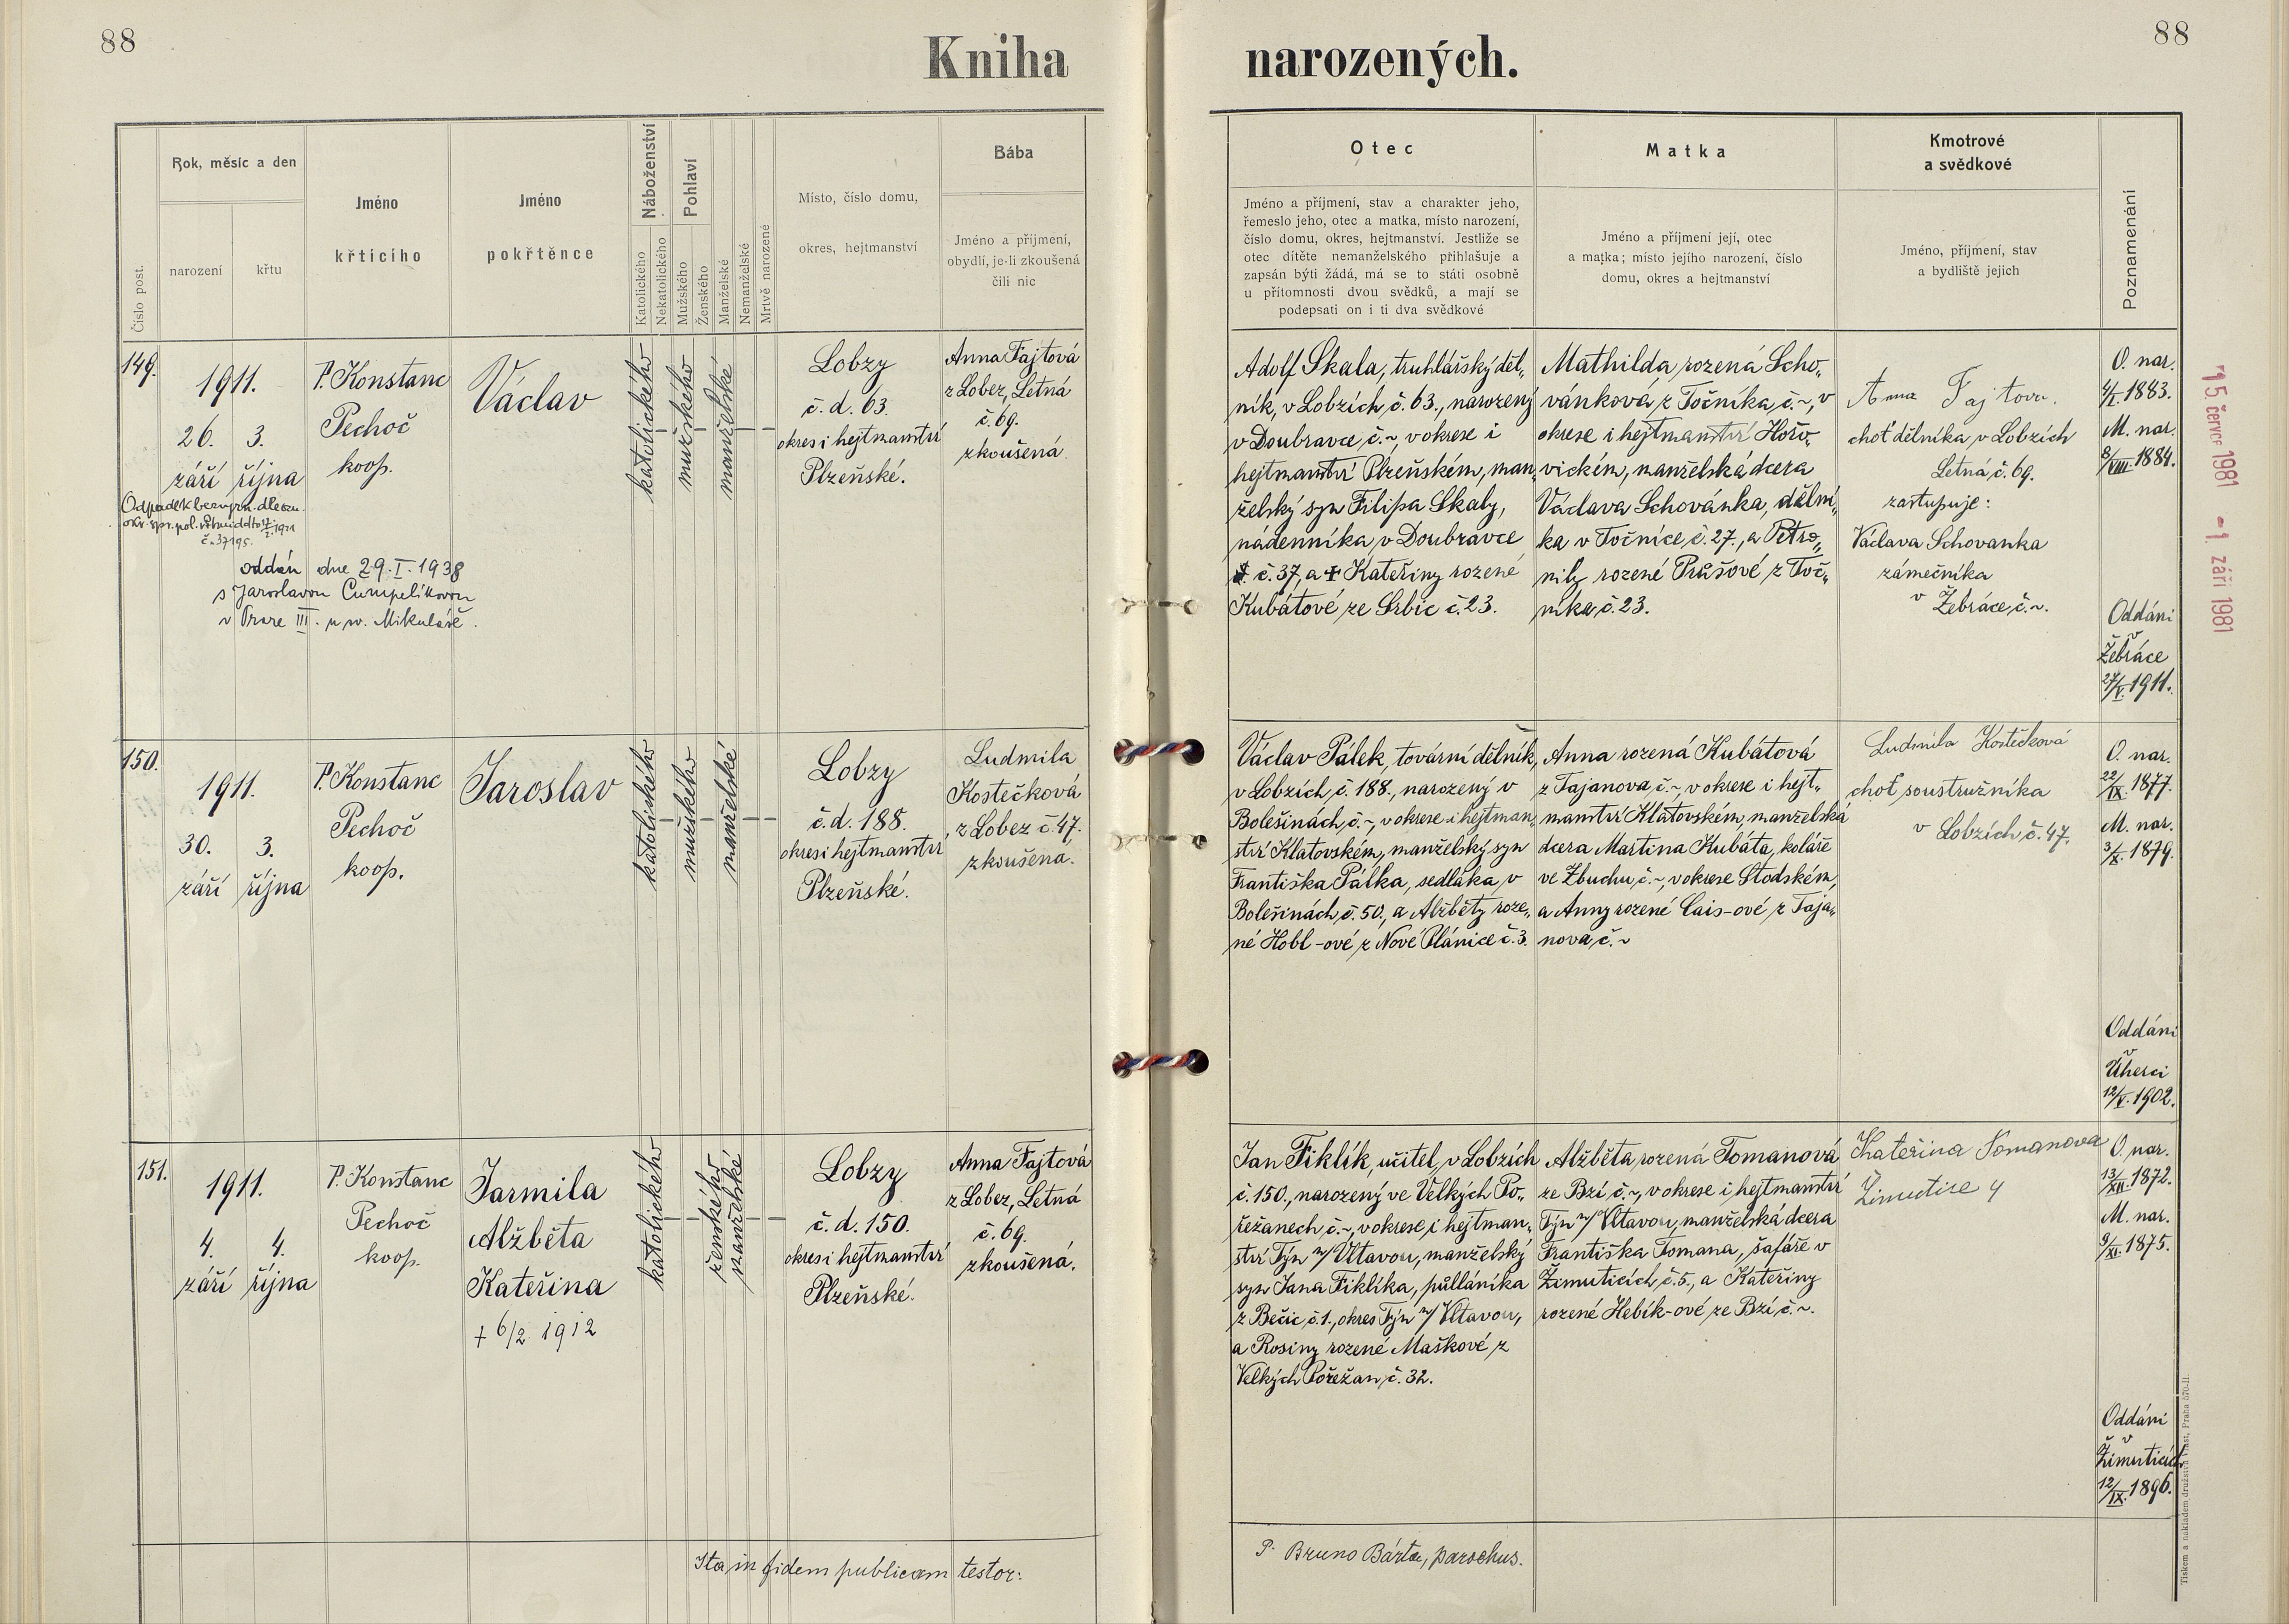 88
Kniha
narozených.
88
Číslo post.
Rok, měsíc a den
narození
křtu
Jméno
křtícího
Jméno
pokřtěnce
Náboženství
Katolického
Nekatolického
Pohlaví
Mužského
Ženského
Manželské
Nemanželské
Mrtvě narozené
Místo, číslo domu,
okres, hejtmanství
Bába
Jméno a příjmení,
obydlí, je-li zkoušená
čili nic
Otec
Jméno a příjmení, stav a charakter jeho,
řemeslo jeho, otec a matka, místo narození,
číslo domu, okres, hejtmanství. Jestliže se
otec dítěte nemanželského přihlašuje a
zapsán býti žádá, má se to státi osobně
u přítomnosti dvou svědků, a mají se
podepsati on i ti dva svědkové
Matka
Jméno a příjmení její, otec
a matka; místo jejího narození, číslo
domu, okres a hejtmanství
Kmotrové
a svědkové
Jméno, příjmení, stav
a bydliště jejich
Poznamenání
149.
1911.
26. 3.
září října
Odpadek
č. 37195.
oddán dne 29. I. 1938
s Jaroslavou Cumpelíkovou
v Praze III. u sv. Mikuláše.
P. Konstanc
Pechoč
koop.
Václav
katolického
mužského
manželské
Lobzy
č. d. 63.
okres i hejtmanství
Plzeňské.
Anna Fajtová
z Lobez, Letná
č. 69.
zkoušená.
Adolf Skala, truhlářský děl„
ník, v Lobzích, č. 63., narozený
v Doubravce, č. ~, v okrese i
hejtmanství Plzeňském, man„
želský syn Filipa Skaly,
nádenníka, v Doubravce
č. 37, a + Kateřiny rozené
Kubátové ze Srbic č. 23.
Mathilda, rozená Scho„
vánková z Točníka, č. ~, v
okrese i hejtmanství Hořo„
vickém, manželská dcera
Václava Schovánka, dělní„
ka v Točníce, č. 27., a Petro„
nily rozené Průšové z Toč„
níka, č. 23.
Anna Fajtova.
choť dělníka v Lobzích
Letná č. 69.
zastupuje:
Václava Schovanka
zámečníka
v Žebráce, č. ~.
O. nar.
4/I. 1883.
M. nar.
8/VIII. 1884.
Oddáni
v
Žebráce
27/V. 1911.
15. červce 1981 - 1. září 1981
150.
1911.
30. 3.
září října
P. Konstanc
Pechoč
koop.
Jaroslav
katolického
mužského
manželské
Lobzy
č. d. 188.
okres i hejtmanství
Plzeňské.
Ludmila
Kostečková
z Lobez č. 47.
zkoušená.
Václav Pálek, tovární dělník,
v Lobzích, č. 188., narozený v
Bolešinách, č. ~, v okrese i hejtman„
ství Klatovském, manželský syn
Františka Pálka, sedláka, v
Bolešinách, č. 50., a Alžběty roze„
né Hobl-ové z Nové Plánice č. 3.
Anna rozená Kubátová
z Tajanova, č. ~, v okrese i hejt„
manství Klatovském, manželská
dcera Martina Kubáta, koláře
ve Zbuchu, č. ~, v okrese Stodském,
a Anny rozené Cais-ové z Taja„
nova, č. ~
Ludmila Kostečková
choť soustružníka
v Lobzích č. 47.
O. nar.
22/IX. 1877.
M. nar.
3/X. 1879.
Oddáni
v
Úherci
12/V. 1902.
151.
1911.
4. 4.
září října
P. Konstanc
Pechoč
koop.
Jarmila
Alžběta
Kateřina
+ 6/2. 1912
katolického
ženského
manželské
Lobzy
č. d. 150.
okres i hejtmanství
Plzeňské.
Anna Fajtová
z Lobez, Letná
č. 69.
zkoušená.
Jan Fiklík, učitel, v Lobzích
č. 150., narozený ve Velkých Po„
řežanech č. ~, v okrese, i hejtman„
ství Týn n/ Vltavou, manželský
syn Jana Fiklíka, půlláníka
z Bečic č. 1., okres Týn n/ Vltavou,
a Rosiny rozené Maškové z
Velkých Pořežan, č. 32.
Alžběta, rozená Tomanová
ze Bzí, č. ~, v okrese i hejtmanství
Týn n/ Vltavou, manželská dcera
Františka Tomana, šafáře v
Žimuticích, č. 5., a Kateřiny
rozené Hebík-ové ze Bzí č. ~.
Kateřina Tomanova
Zimutice 4
O. nar.
13/XII. 1872.
M. nar.
9/XI. 1875.
Oddáni
v
Žimuticích
12/IX. 1896.
Ita in fidem publicam testor:
P. Bruno Bárta, parochus.
Tiskem a nakladem družstva Vlast, Praha 570-II.